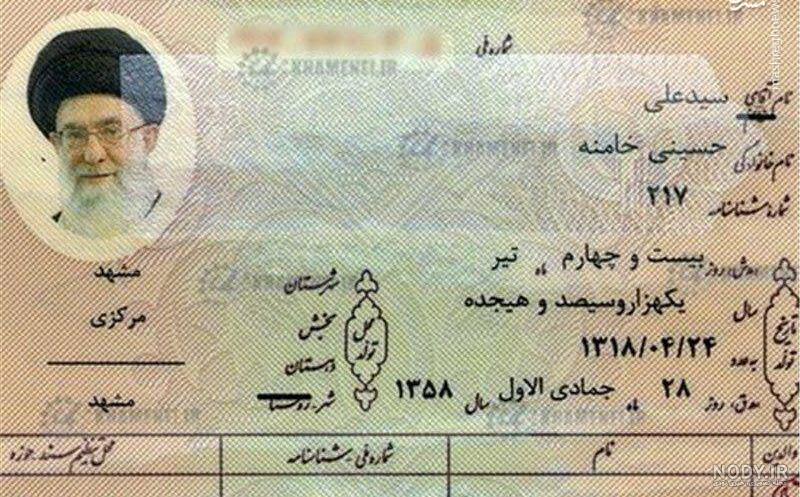 شماره ملی
KHAMENEI.IR
نام آقای سیدعلی
نام خانوادگی حسینی خامنه
شماره شناسنامه ۲۱۷
ه‍.ش، روز بیست و چهارم ماه تیر
سال یکهزاروسیصد و هیجده
به عدد ۱۳۱۸/۰۴/۲۴
ه‍.ق، روز ۲۸ ماه جمادی الاول سال ۱۳۵۸
تاریخ تولد
محل تولد
شهرستان مشهد
بخش مرکزی
دهستان
شهر روستا مشهد
والدین نام شماره ملی شناسنامه محل تنظیم سند حوزه
NODY.IR